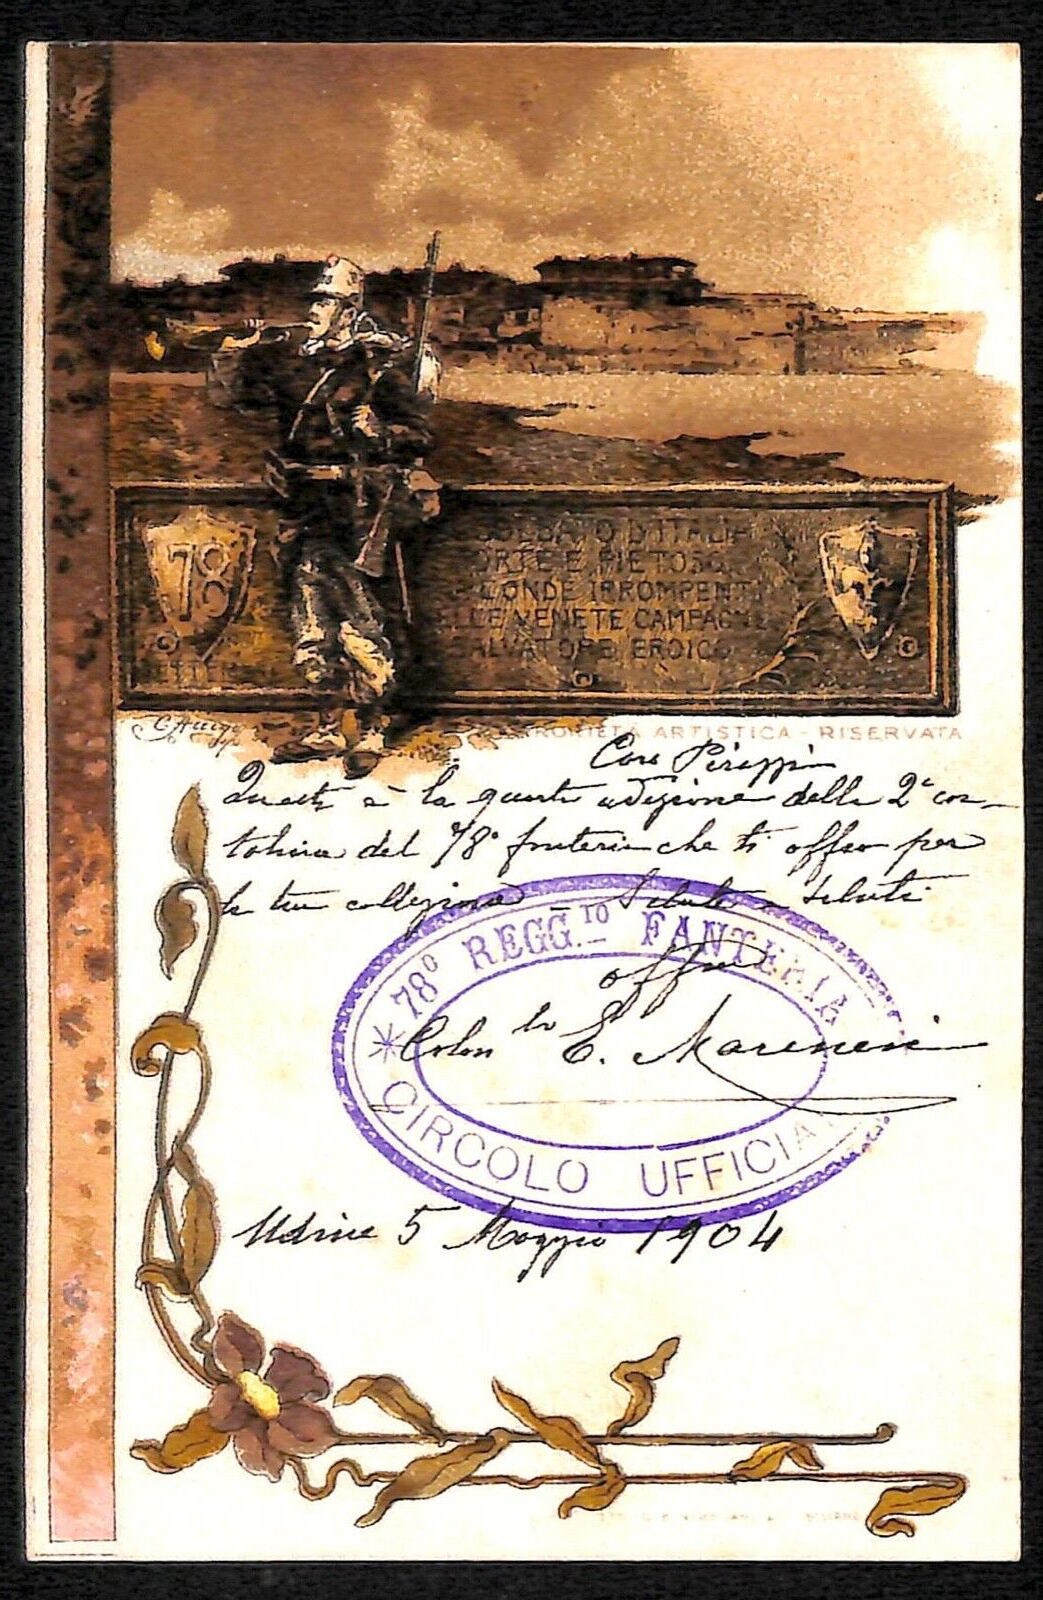 78
SOLDATO D'ITALIA
FORTE E PIETOSO
ONDE IRROMPENTI
VENETE CAMPAGNE
SALVATORE EROICO
PROPRIETÀ ARTISTICA - RISERVATA
Caro
Questa è la quarta edizione della 2ª car-
tolina del 78° fanteria che ti offro per
la tua collezione - Saluti e saluti
78º REGG.TO FANTERIA
Colon.llo E.
CIRCOLO UFFICIALI
Udine 5 Maggio 1904